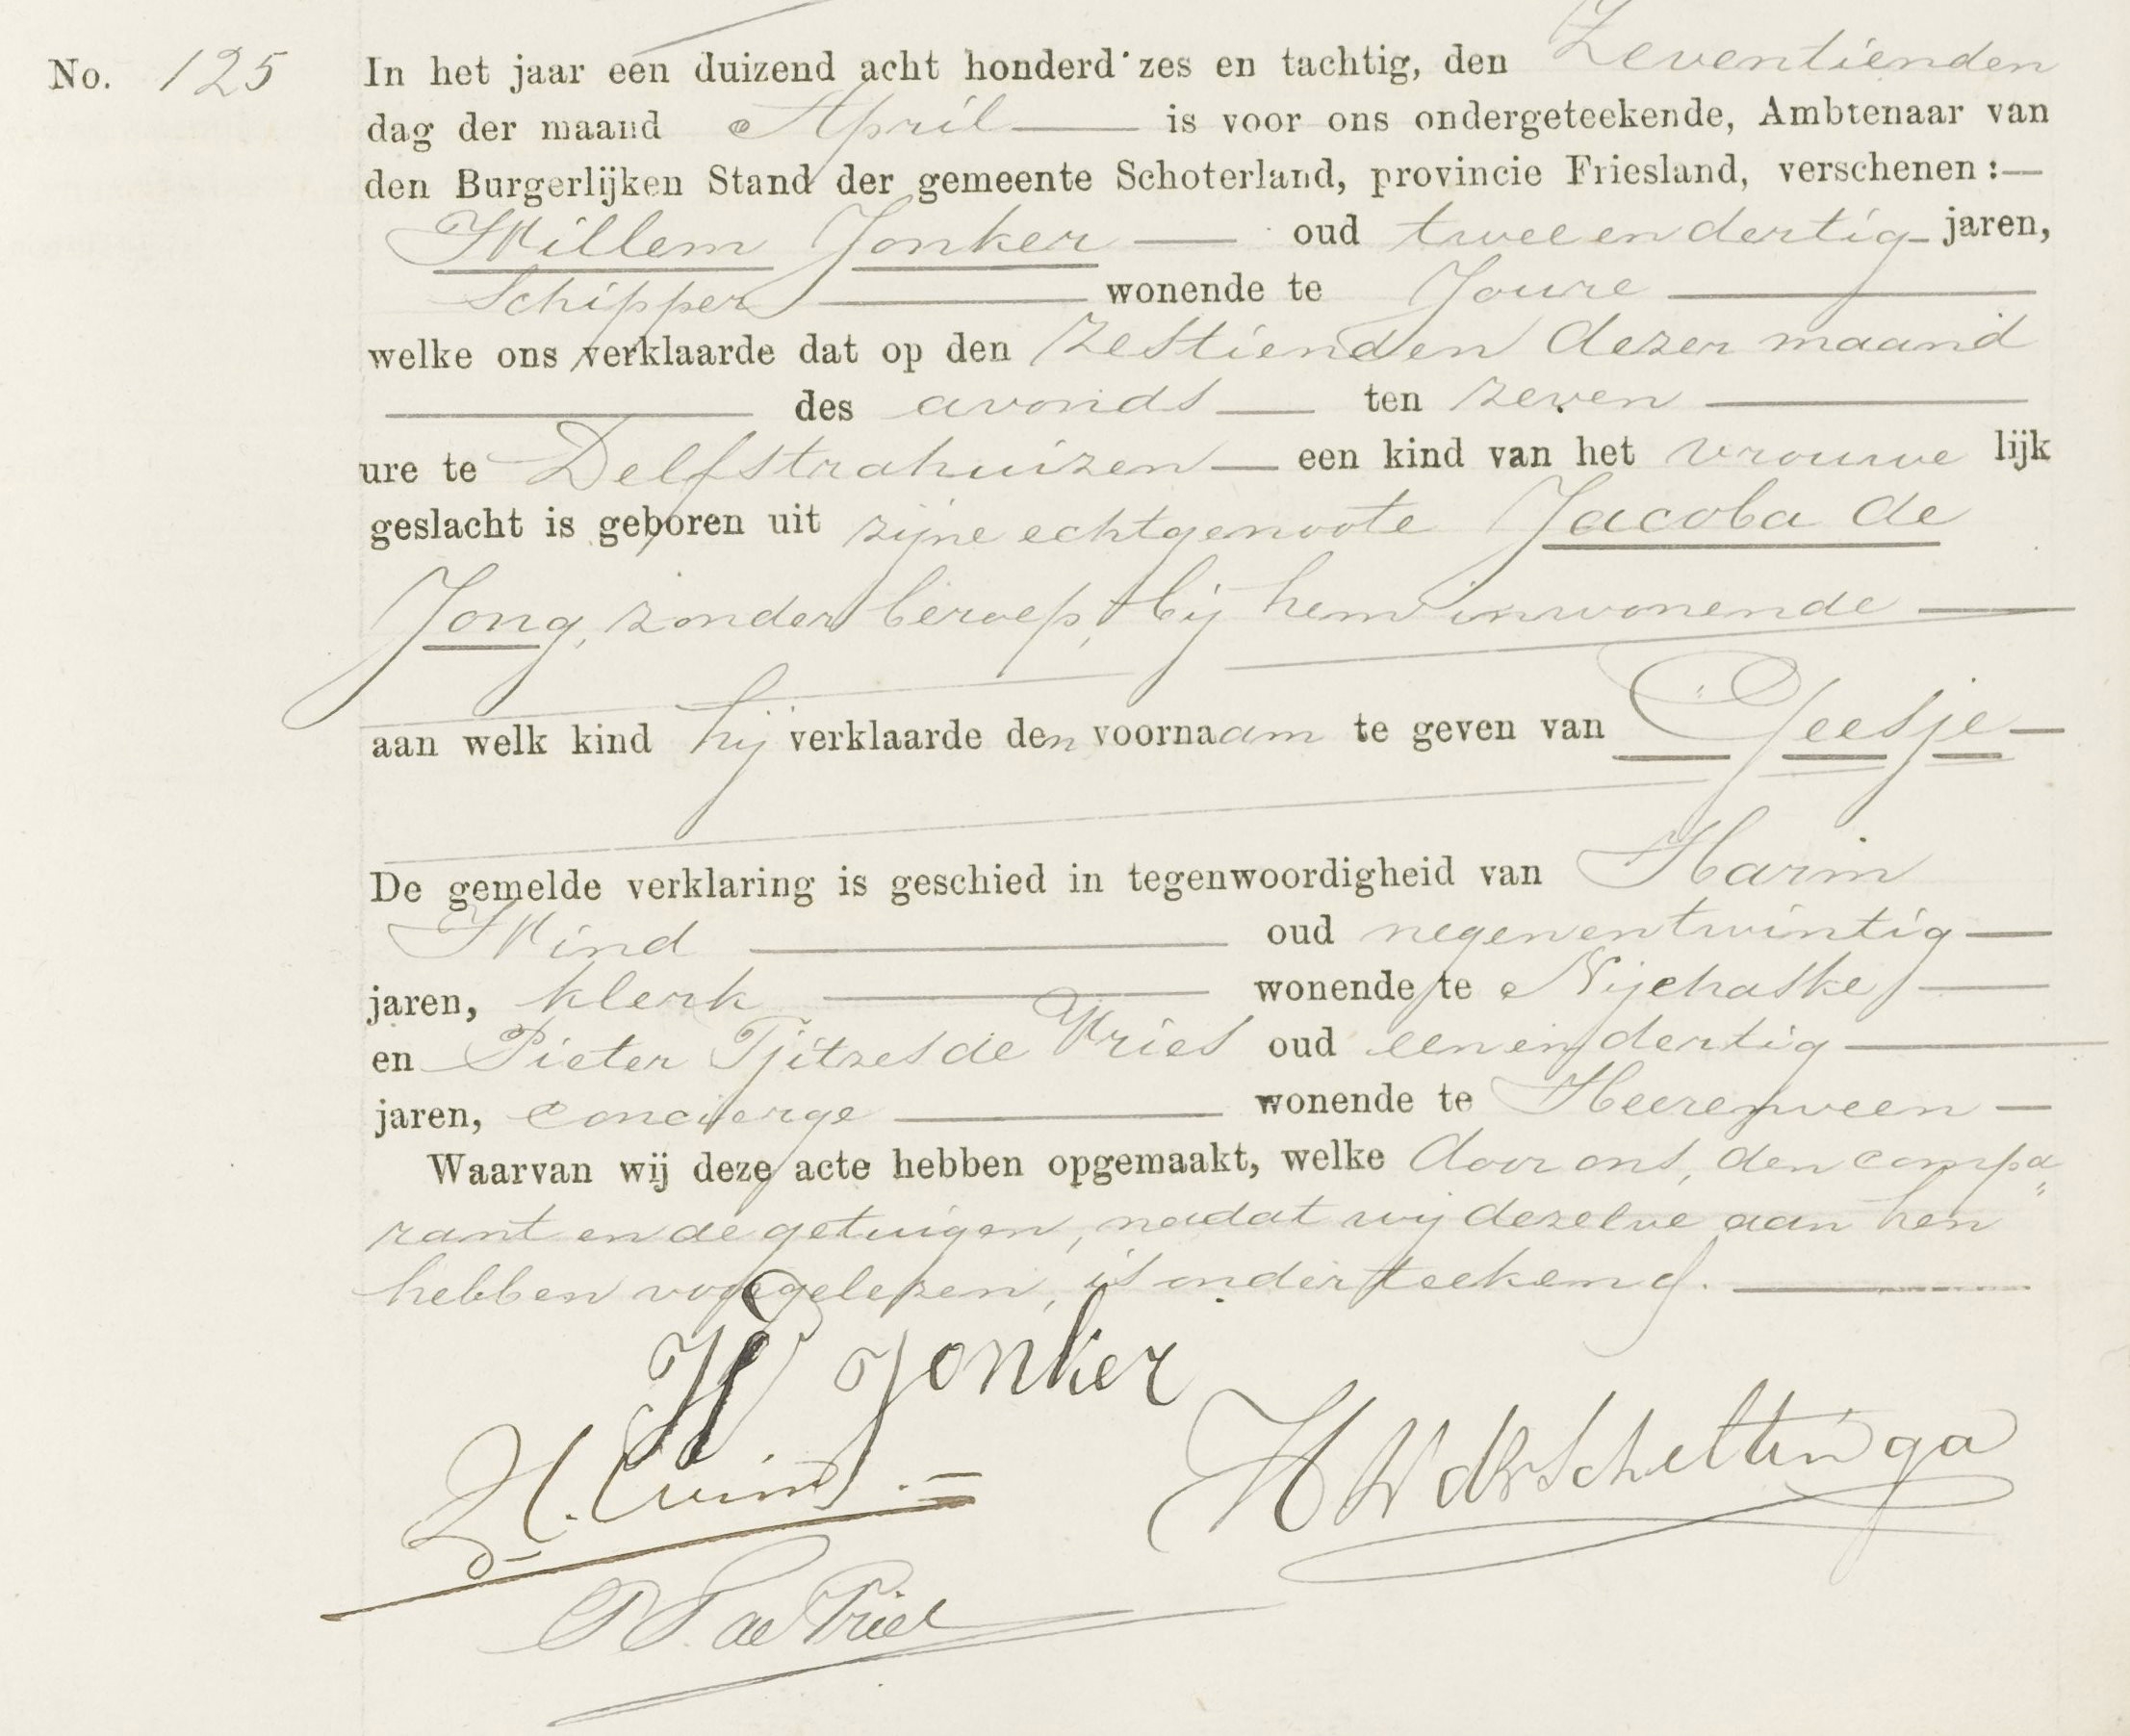 No. 125
In het jaar een duizend acht honderd zes en tachtig, den Zeventienden
dag der maand April is voor ons ondergeteekende, Ambtenaar van
den Burgerlijken Stand der gemeente Schoterland, provincie Friesland, verschenen:—
Willem Jonker — oud twee en dertig jaren,
Schipper — wonende te Joure —
welke ons verklaarde dat op den zestienden dezer maand
— des avonds — ten zeven —
ure te Delfstrahuizen — een kind van het vrouwelijk
geslacht is geboren uit zijne echtgenoote Jacoba de
Jong, zonder beroep, bij hem inwonende —
aan welk kind hij verklaarde den voornaam te geven van Geesje —
De gemelde verklaring is geschied in tegenwoordigheid van Harm
Wind — oud negenentwintig —
jaren, klerk — wonende te Nijehaske —
en Pieter Tjitzes de Vries oud eenendertig —
jaren, concierge — wonende te Heerenveen —
Waarvan wij deze acte hebben opgemaakt, welke door ons, den compa„
rant en de getuigen, nadat wij dezelve aan hen
hebben voorgelezen, is onderteekend. —
W Jonker
H. Wind.
HW d B v Scheltinga
P T. de Vries